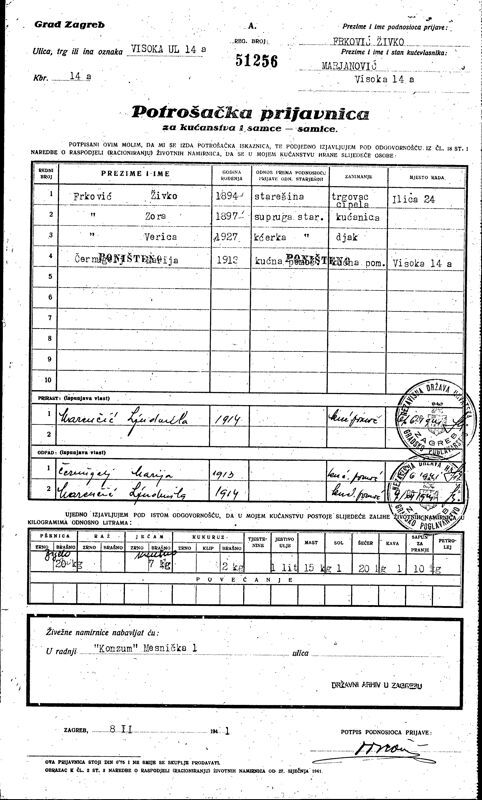 Grad Zagreb
A.
Prezime i ime podnosioca prijave:
REG. BROJ:
PRKOVIĆ ŽIVKO
Ulica, trg ili ina oznaka VISOKA UL 14 a
51256
Prezime i ime i stan kućevlasnika:
MARJANOVIĆ
Kbr. 14 a
Visoka 14 a
Potrošačka prijavnica
za kućanstva i samce — samice.
POTPISANI OVIM MOLIM, DA MI SE IZDA POTROŠAČKA ISKAZNICA, TE PODJEDNO IZJAVLJUJEM POD ODGOVORNOŠĆU IZ ČL. 18 ST. 1
NAREDBE O RASPODJELI (RACIONIRANJU) ŽIVOTNIH NAMIRNICA, DA SE U MOJEM KUĆANSTVU HRANE SLIJEDEĆE OSOBE:
REDNI BROJ PREZIME I IME GODINA ROĐENJA ODNOS PREMA PODNOSIOCU PRIJAVE ODN. STARJEŠINI ZANIMANJE MJESTO RADA
1 Prković Živko 1894 starešina trgovac cipela Ilica 24
2 " Zora 1897 supruga star. kućanica
3 " Verica 1927 kćerka " djak
4 PONIŠTENO 1913 kućna PONIŠTENO kućna pom. Visoka 14 a
5
6
7
8
9
10
PRIRAST: (Ispunjava vlast)
1 Marenčić Ljudmila 1914 kuć. pomoć
2
NEZAVISNA DRŽAVA HRVATSKA
GRADSKO POGLAVARSTVO
ZAGREB
OTPAD: (Ispunjava vlast)
1 Černugelj Marija 1913 kuć. pomoć
2 Marenčić Ljudmila 1914 kuć. pomoć
NEZAVISNA DRŽAVA
GRADSKO POGLAVARSTVO
ZAGREB
UJEDNO IZJAVLJUJEM POD ISTOM ODGOVORNOŠĆU, DA U MOJEM KUĆANSTVU POSTOJE SLIJEDEĆE ZALIHE ŽIVOTNIH NAMIRNICA U
KILOGRAMIMA ODNOSNO LITRAMA:
PŠENICA RAŽ JEČAM KUKURUZ TJESTENINE JESTIVO ULJE MAST SOL ŠEĆER KAVA SAPUN ZA PRANJE PETROLEJ
ZRNO BRAŠNO ZRNO BRAŠNO ZRNO BRAŠNO ZRNO KLIP BRAŠNO
20 kg 7 kg 2 kg 1 lit 15 kg 1 20 kg 1 10 kg
POVEĆANJE
Živežne namirnice nabavljat ću:
U radnji "Konzum" Mesnička 1 ulica
DRŽAVNI ARHIV U ZAGREBU
ZAGREB, 8 II 1941
POTPIS PODNOSIOCA PRIJAVE:
OVA PRIJAVNICA STOJI DIN 0'75 I NE SMIJE SE SKUPLJE PRODAVATI.
OBRAZAC K ČL. 2 ST. 2 NAREDBE O RASPODJELI (RACIONIRANJU) ŽIVOTNIH NAMIRNICA OD 27. SIJEČNJA 1941.